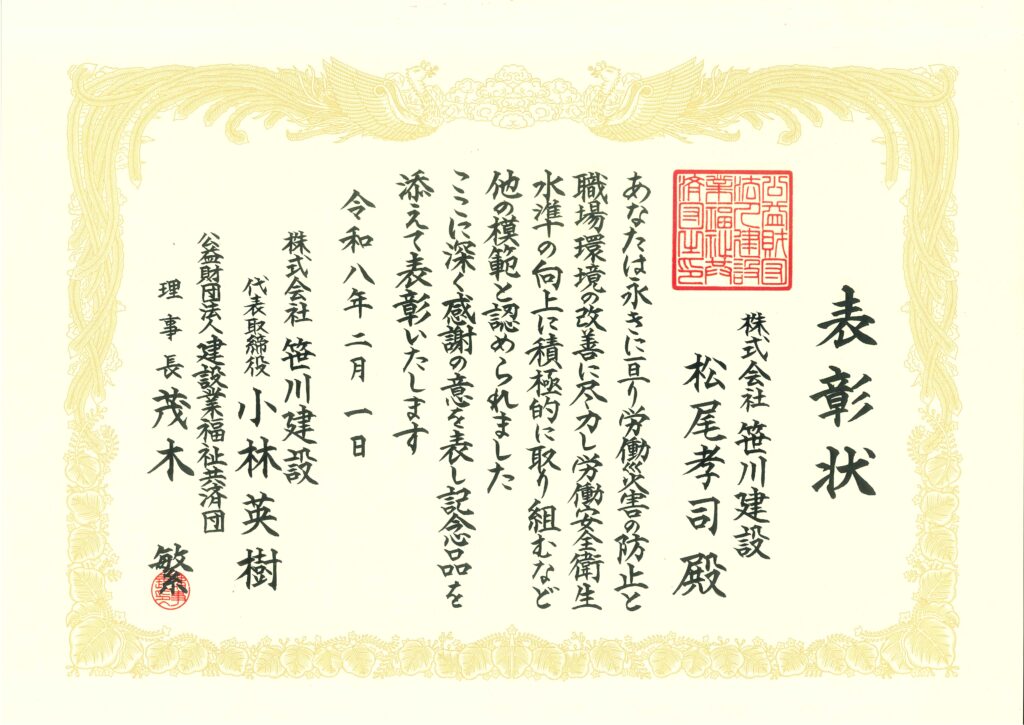 表彰状
株式会社 笹川建設
松尾孝司 殿
公益財団
法人建設
業福祉共
済団之印
あなたは永きに亘り労働災害の防止と
職場環境の改善に尽力し労働安全衛生
水準の向上に積極的に取り組むなど
他の模範と認められました
ここに深く感謝の意を表し記念品を
添えて表彰いたします
令和八年二月一日
株式会社 笹川建設
代表取締役 小林英樹
公益財団法人 建設業福祉共済団
理事長 茂木 繁